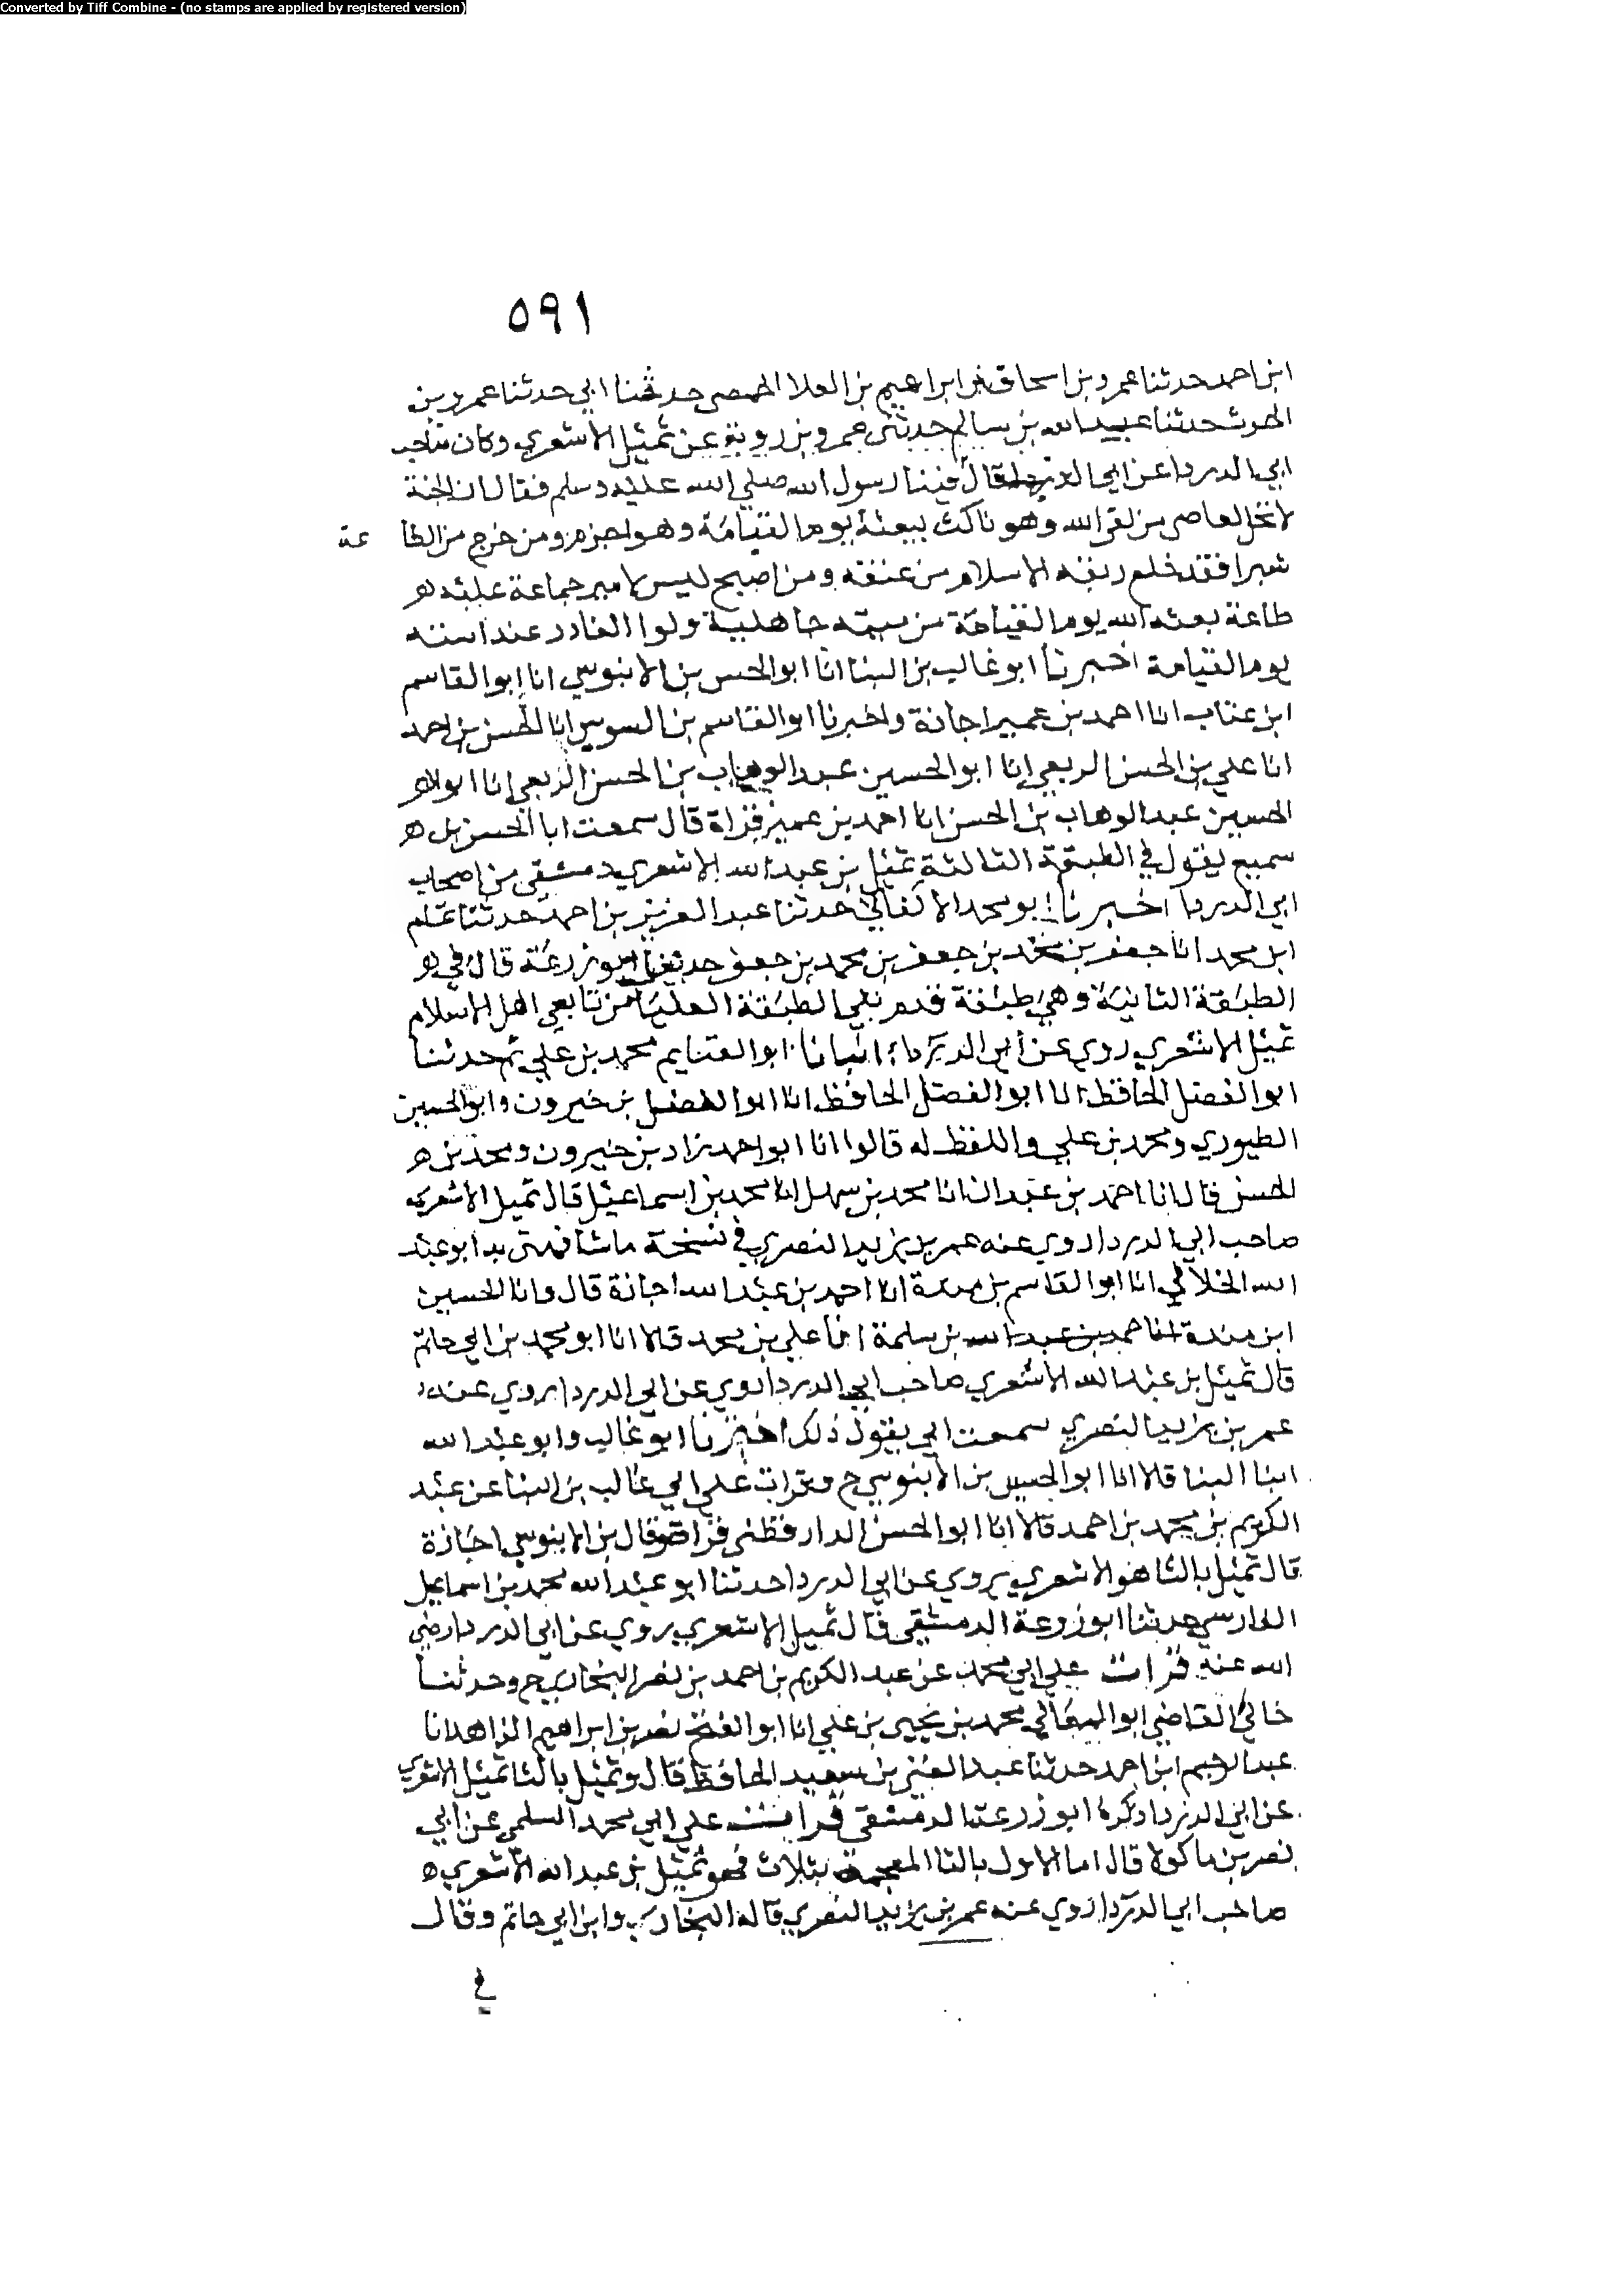 Converted by Tiff Combine - (no stamps are applied by registered version)
٥٩١
ابن احمد حدثنا عمرو بن اسحاق بن ابراهيم بن العلا الحمصي حدثنا ابي حدثنا عمرو بن
الحرث حدثنا عبيد الله بن سالم حدثني عمرو بن روبة عن ثميل الاشعري وكان صاحب
ابي الدردا عن ابي الدردا قال فينا رسول الله صلي الله عليه وسلم فقال ان الجنة
لا تحل لعاص من لقي الله وهو ناكث بيعته يوم القيامة وهو اجزم ومن خرج من الطا عة
شبرا فقد خلع ربقة الاسلام من عنقه ومن اصبح ليس لامير جماعة عليه
طاعة بعثه الله يوم القيامة من ميتة جاهلية ولوا الغادر عند استه
يوم القيامة اخبرنا ابو غالب بن البنا انا ابو الحسن بن الابنوسي انا ابو القاسم
ابن عتاب انا احمد بن عمير اجازة واخبرنا ابو القاسم بن السوسي انا الحسن بن احمد
انا علي بن الحسن الربعي انا ابو الحسين عبد الوهاب بن الحسن الربعي انا ابو
الحسين عبد الوهاب بن الحسن انا احمد بن عمير قراة قال سمعت ابا الحسن بن
سميع يقول في الطبقة الثالثة ثميل بن عبد الله الاشعري دمشقي من اصحاب
ابي الدردا اخبرنا ابو محمد الاكفاني حدثنا عبد العزيز بن احمد حدثنا تمام
ابن محمد انا جعفر بن محمد بن جعفر بن محمد بن جعفر حدثنا ابو زرعة قال في
الطبقة الثانية وهي طبقة قدم تلي الطبقة العليا من تابعي اهل الاسلام
ثميل الاشعري روي عن ابي الدردا انبانا ابو الغنايم محمد بن علي ثم حدثنا
ابو الفضل الحافظ انا ابو الفضل الحافظ انا ابو الفضل بن خيرون وابو الحسين
الطيوري ومحمد بن علي واللفظ له قالوا انا ابو احمد زاد بن خيرون ومحمد بن
الحسن قال انا احمد بن عبدان انا محمد بن سهل انا محمد بن اسماعيل قال ثميل الاشعري
صاحب ابي الدردا روي عنه عمر بن يزيد النصري في نسخة ما شافهني به ابو عبد
الله الخلال انا ابو القاسم بن مندة انا احمد بن عبد الله اجازة قال وانا الحسين
ابن مندة بن سلمة انا علي بن محمد قالا انا ابو محمد بن ابي حاتم
قال ثميل بن عبد الله الاشعري صاحب ابي الدردا روي عن ابي الدردا روي عنه
عمر بن يزيد النصري سمعت ابي يقول ذلك اخبرنا ابو غالب وابو عبد الله
ابنا البنا قالا انا ابو الحسين بن الابنوسي ح وقرات علي ابي غالب بن البنا عن عبد
الكريم بن محمد بن احمد قالا انا ابو الحسن الدارقطني وقال بن الابنوسي اجازة
قال ثميل بالثا هو الاشعري يروي عن ابي الدردا حدثنا ابو عبد الله محمد بن اسماعيل
الفارسي حدثنا ابو زرعة الدمشقي قال ثميل الاشعري يروي عن ابي الدردا رضي
الله عنه قرات علي ابي محمد عن عبد الكريم بن احمد بن نصر البخاري ح وحدثنا
خالي القاضي ابو المعالي محمد بن يحيي بن علي انا ابو الفتح نصر بن ابراهيم الزاهد انا
عبد الرحيم ابن احمد حدثنا عبد الغني بن سعيد الحافظ قال وثميل بالثا ثميل الاشعري
عن ابي الدردا ذكره ابو زرعة الدمشقي قرات علي ابي محمد السلمي عن ابي
نصر بن ماكولا قال اما الاول بالثا المعجمة بثلاث فهو ثميل بن عبد الله الاشعري
صاحب ابي الدردا روي عنه عمر بن يزيد النصري قاله البخاري وابن ابي حاتم وقال
في